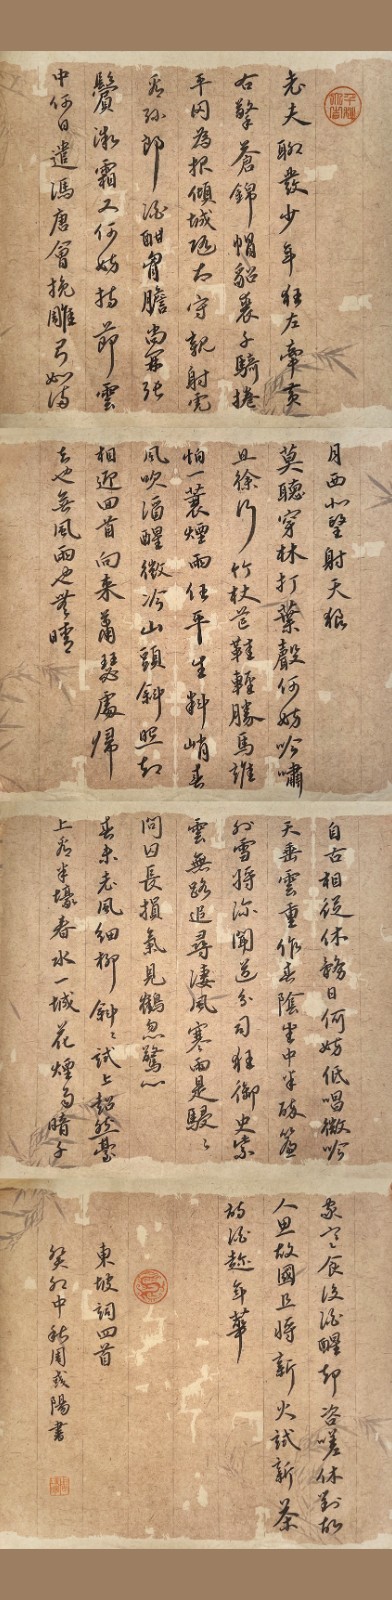 老夫聊發少年狂左牽黄
右擎蒼錦帽貂裘千騎捲
平冈為报傾城随太守親射虎
看孫郎酒酣胸膽尚開张
鬢微霜又何妨持節雲
中何日遣馮唐會挽雕弓如满
月西北望射天狼
莫聽穿林打葉聲何妨吟嘯
且徐行竹杖芒鞋輕勝馬誰
怕一蓑煙雨任平生料峭春
风吹酒醒微冷山頭斜照却
相迎回首向来蕭瑟處歸
去也無風雨也無晴
自古相從休務日何妨低唱微吟
天垂雲重作春陰坐中半醉簾
外雪将深聞道分司狂御史紫
雲無路追尋凄风寒雨是駸〻
問囚長損氣見鶴忽驚心
春未老风细柳斜〻試上超然臺
上看半壕春水一城花煙雨暗千
家寒食後酒醒却咨嗟休對故
人思故國且将新火試新茶
詩酒趁年華
東坡詞四首
癸卯中秋周陽書